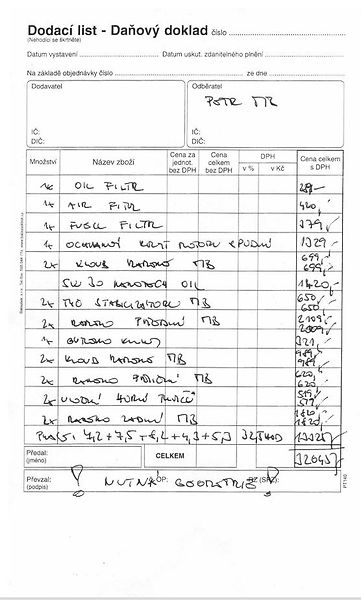 Dodací list - Daňový doklad číslo
(Nehodící se škrtněte)
Datum vystavení Datum uskut. zdanitelného plnění
Na základě objednávky číslo ze dne
Dodavatel Odběratel
PETR
IČ: IČ:
DIČ: DIČ:
Množství Název zboží Cena za jednot. bez DPH Cena celkem bez DPH DPH v % v Kč Cena celkem s DPH
1x OIL FILTR
1x AIR FILTR 420,-
1x FUEL FILTR 379,-
1x OCHRANNÝ KRYT MOTORU SPODNÍ 1329,-
2x KLOUB RAMENO MB 699,- 699,-
5W30 MOTOROVÝ OIL 1420,-
2x TYČ STABILIZÁTORU MB 650,- 650,-
2x RAMENO PŘEDNÍ MB
1x 321,-
2x KLOUB RAMENO MB 989,- 989,-
2x RAMENO PŘEDNÍ MB 620,- 620,-
2x ULOŽENÍ HORNÍ TLUMIČE 519,- 519,-
2x RAMENO ZADNÍ MB 1820,- 1820,-
PRÁCE: 7,2+7,5+8,2+4,3+5,3
Předal: (jméno) CELKEM 32045,-
Převzal: (podpis) ! NUTNÁ GEOMETRIE !
PT140